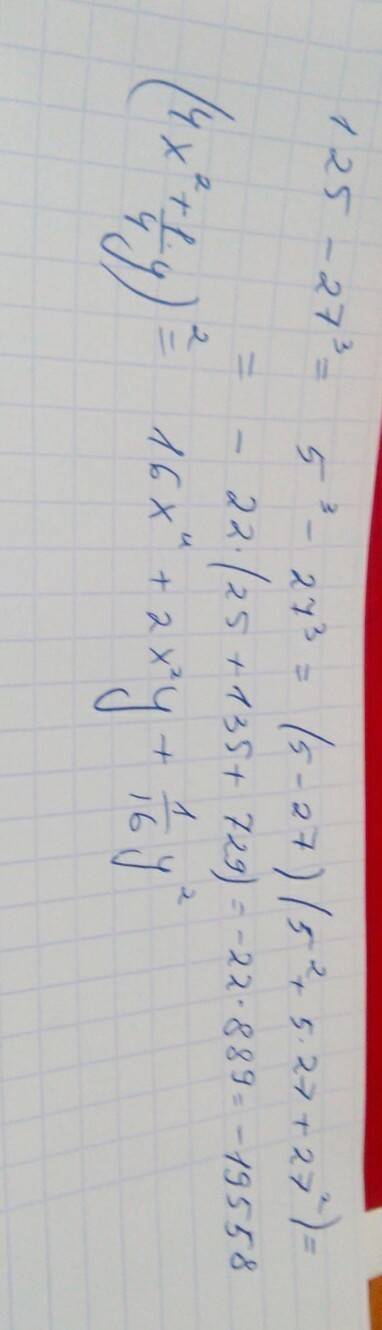 125 - 27³ = 5³ - 27³ = (5 - 27)(5² + 5·27 + 27²) =
= - 22·(25 + 135 + 729) = -22·889 = -19558
(4x² + 1/4 y)² = 16x⁴ + 2x²y + 1/16 y²